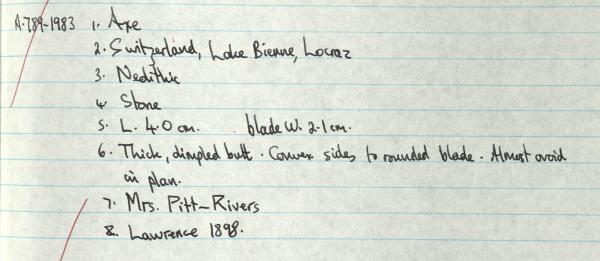 A.789-1983 1. Axe
2. Switzerland, Lake Bienne, Locraz
3. Neolithic
4. Stone
5. L. 4.0 cm. blade W. 2.1 cm.
6. Thick, dimpled butt. Convex sides to rounded blade. Almost ovoid
in plan.
7. Mrs. Pitt-Rivers
8. Lawrence 1898.